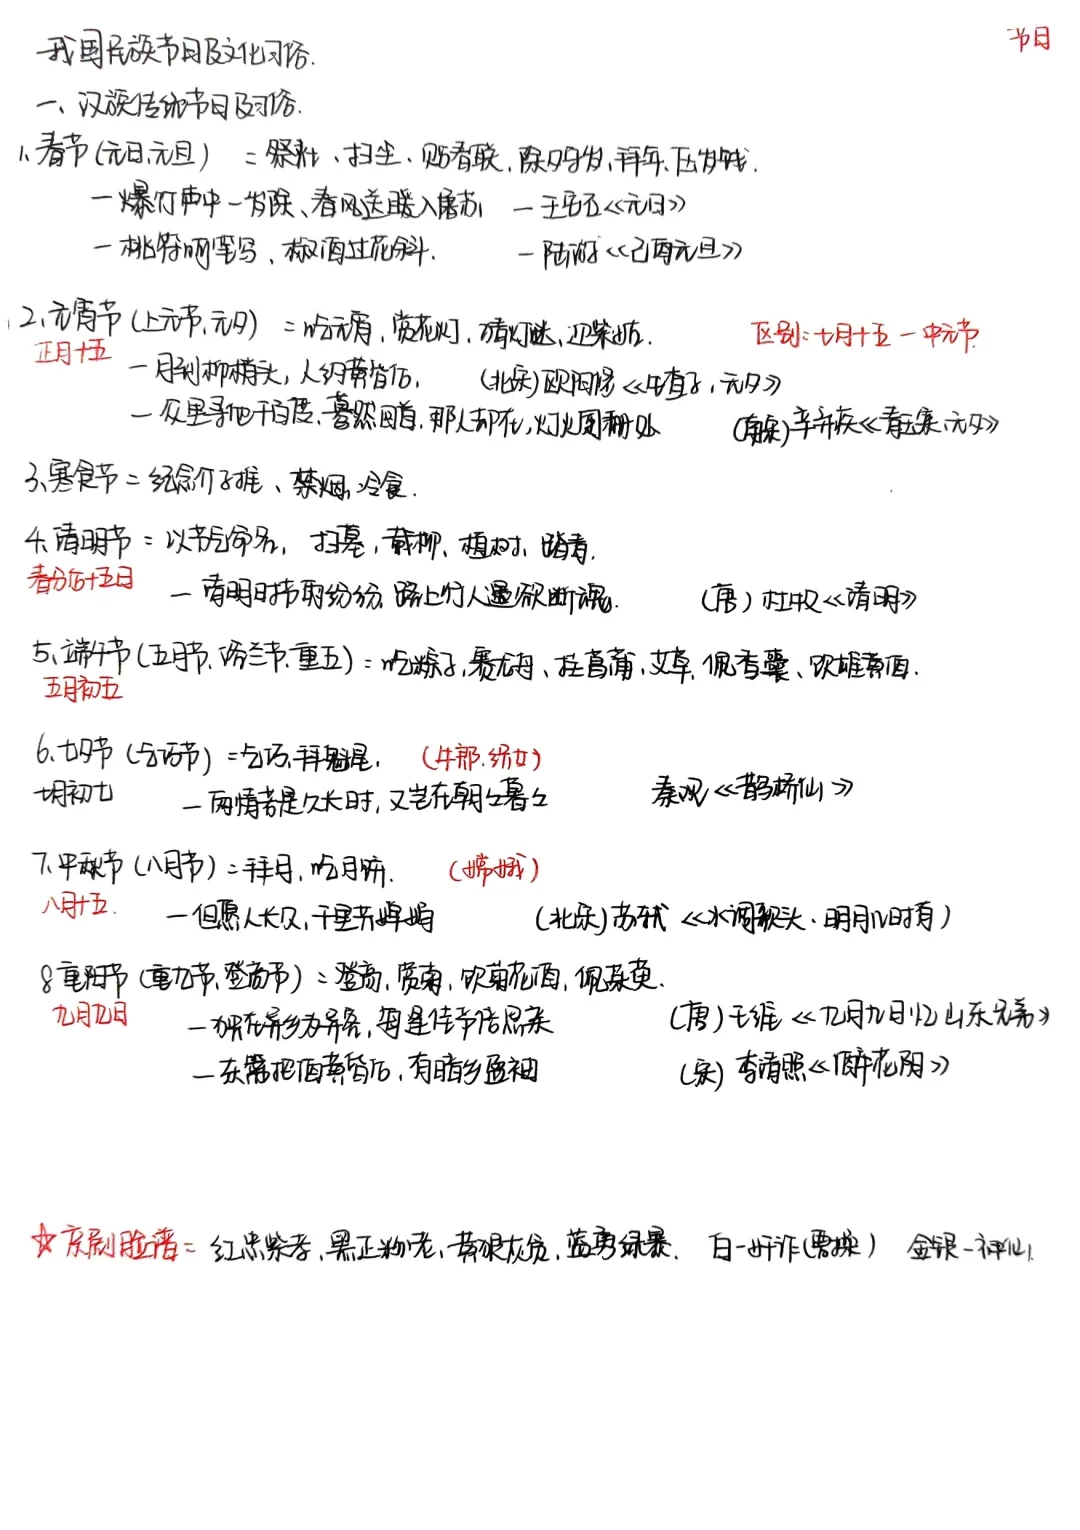 节日
我国民族节日及文化习俗.
一、汉族传统节日及习俗.
1.春节(元日,元旦) = 祭灶、扫尘、贴春联,除夕守岁,拜年,压岁钱.
一爆竹声中一岁除、春风送暖入屠苏 一王安石《元日》
一桃符呵笔写、椒酒过花斜. 一陆游《己酉元旦》
2.元宵节(上元节,元夕) = 吃元宵,赏花灯,猜灯谜,迎紫姑. 区别:七月十五 一 中元节.
正月十五
一月到柳梢头,人约黄昏后, (北宋)欧阳修《生查子,元夕》
一众里寻他千百度,蓦然回首,那人却在,灯火阑珊处 (南宋)辛弃疾《青玉案,元夕》
3.寒食节 = 纪念介子推、禁烟,冷食.
4.清明节 = 以节气命名, 扫墓,戴柳、植树、踏青.
春分后十五日
一清明时节雨纷纷,路上行人遥欲断魂. (唐)杜牧《清明》
5.端午节(五月节,浴兰节,重五) = 吃粽子,赛龙舟、挂菖蒲,艾草,佩香囊、饮雄黄酒.
五月初五
6.七夕节(乞巧节) = 乞巧,拜魁星, (牛郎.织女)
七月初七
一两情若是久长时,又岂在朝朝暮暮 秦观《鹊桥仙》
7.中秋节(八月节) = 拜月,吃月饼. (嫦娥)
八月十五.
一但愿人长久,千里共婵娟 (北宋)苏轼《水调歌头·明月几时有)
8重阳节(重九节,登高节) = 登高,赏菊,饮菊花酒,佩茱萸.
九月九日
一独在异乡为异客,每逢佳节倍思亲 (唐)王维《九月九日忆山东兄弟》
一东篱把酒黄昏后,有暗香盈袖 (宋)李清照《醉花阴》
☆京剧脸谱= 红忠紫孝,黑正粉老,黄狠灰贪,蓝勇绿暴. 白一奸诈(曹操) 金银一神仙.